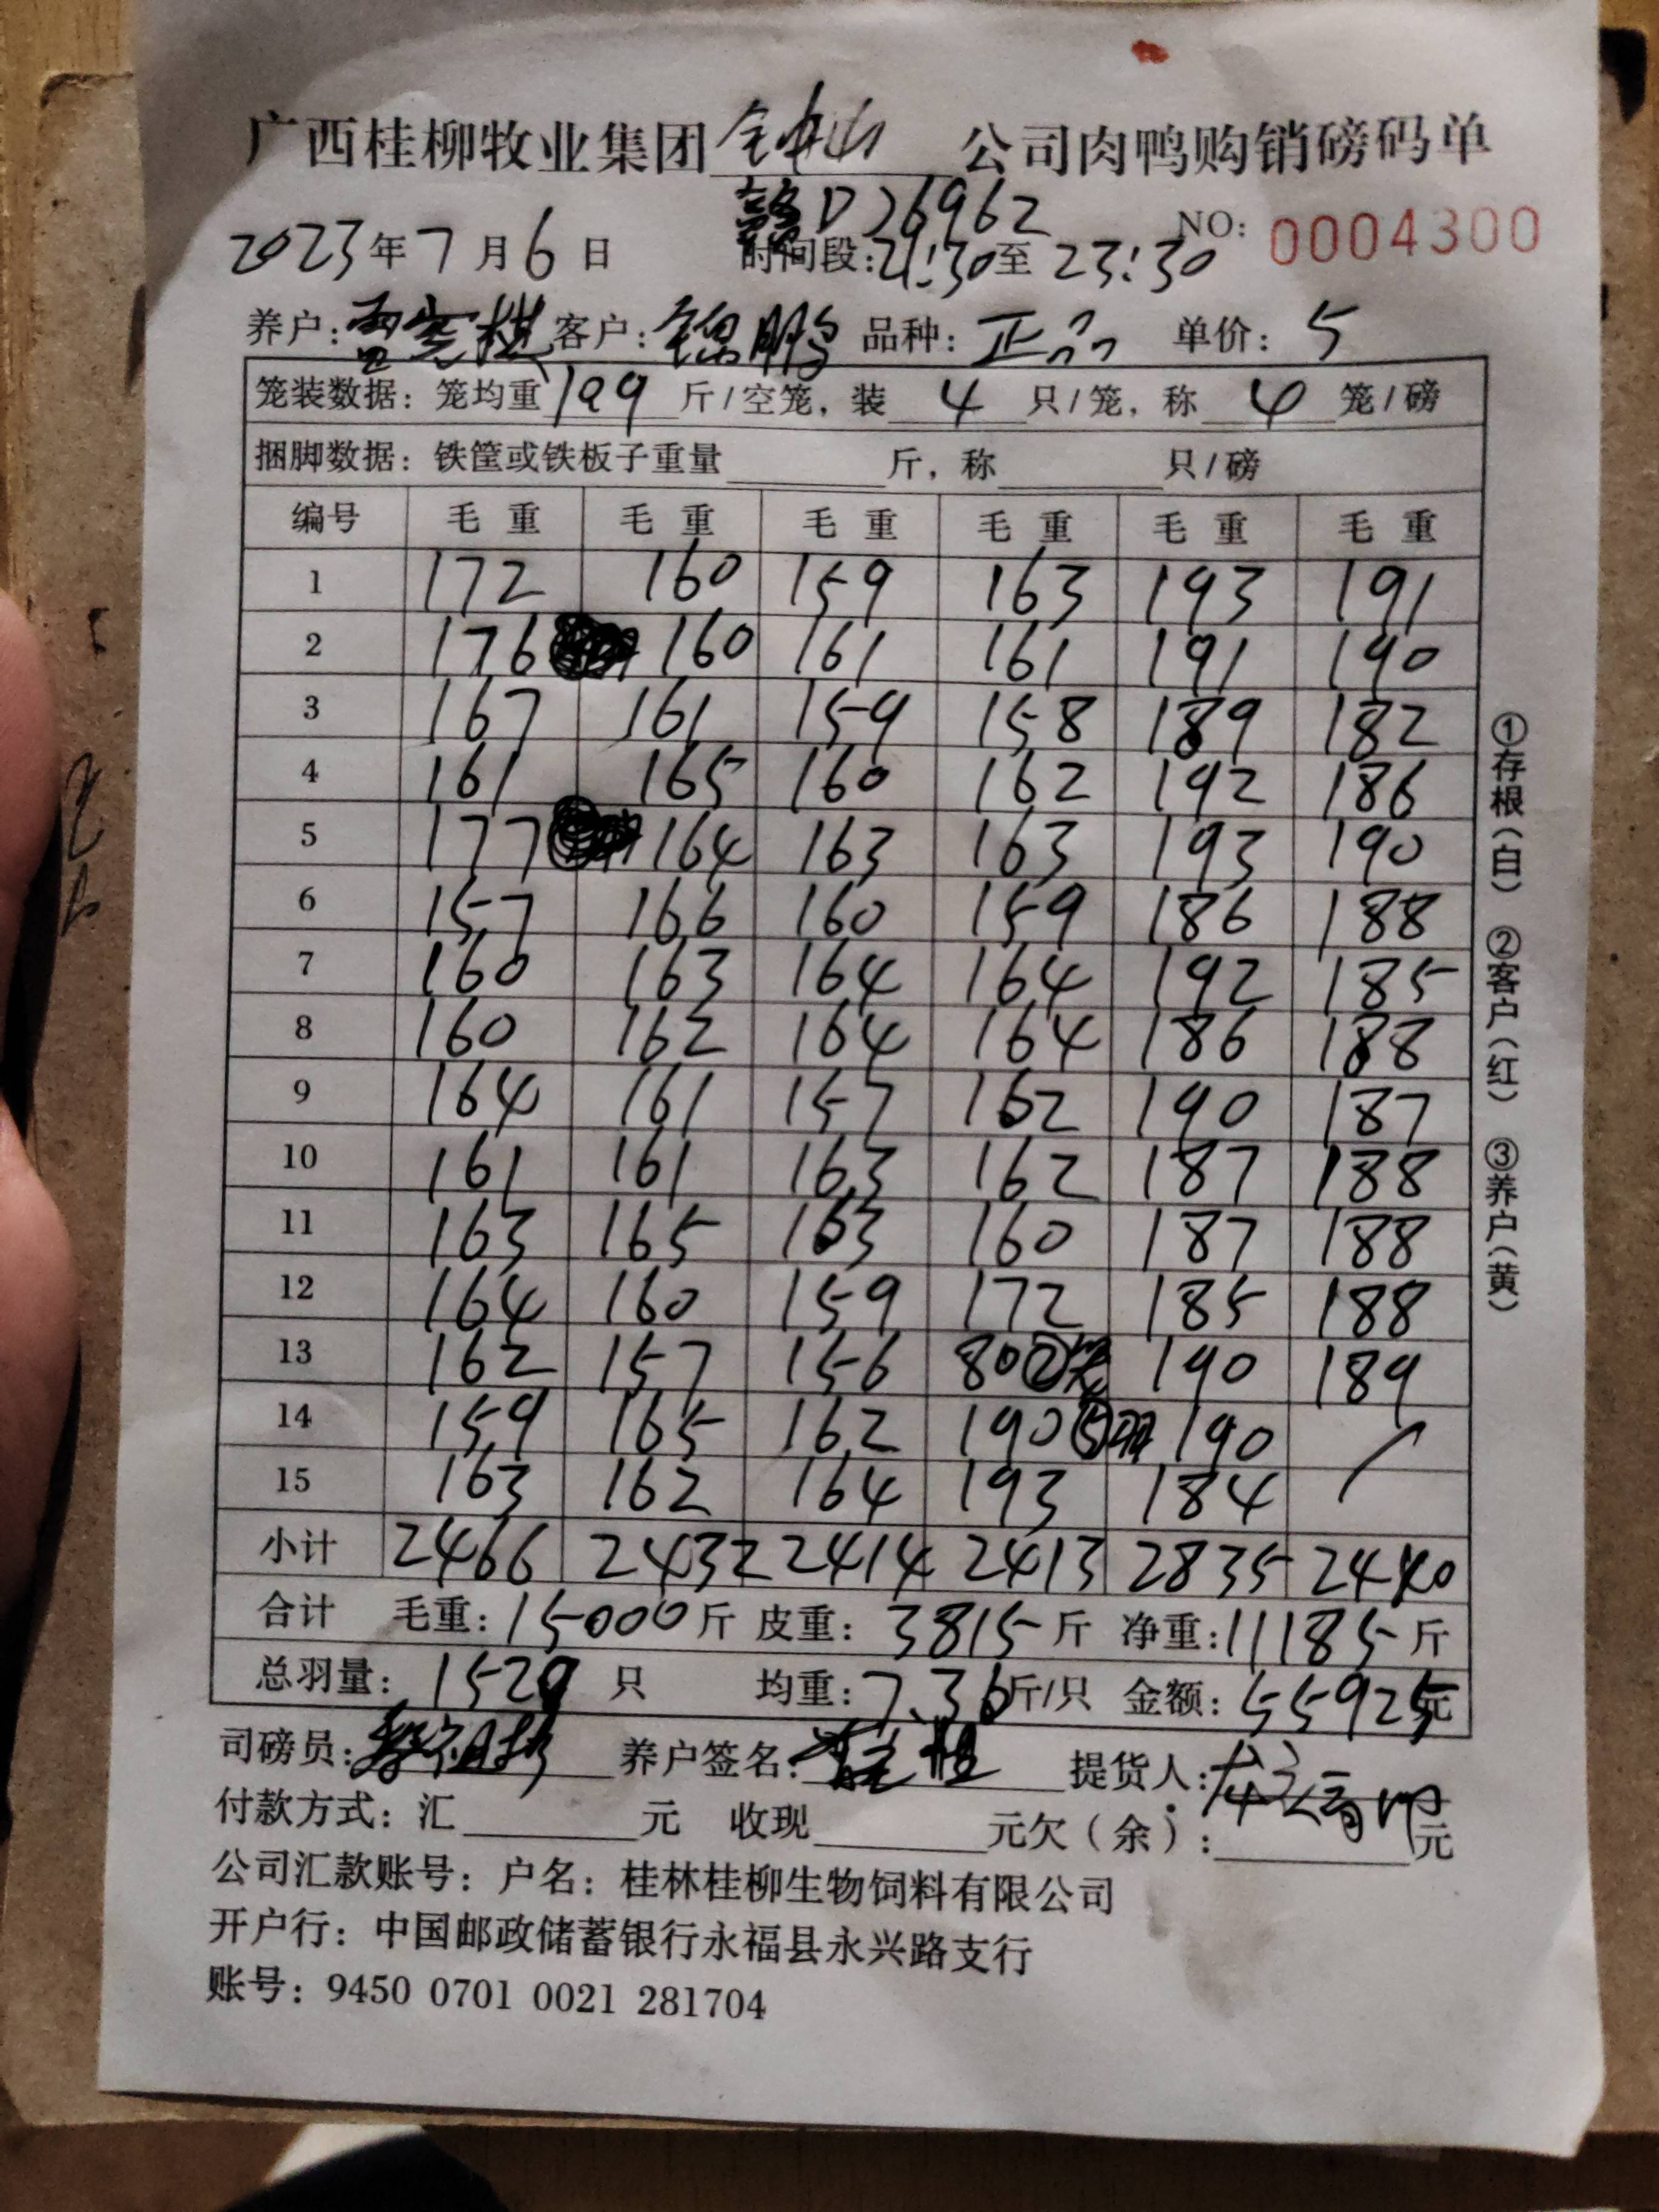 广西桂柳牧业集团钟山公司肉鸭购销磅码单
赣D26962
NO: 0004300
2023年7月6日 时间段:21:30至23:30
养户: 客户:锦鹏 品种:正品 单价:5
笼装数据:笼均重199斤/空笼,装4只/笼,称4笼/磅
捆脚数据:铁筐或铁板子重量 斤,称 只/磅
编号 毛重 毛重 毛重 毛重 毛重 毛重
1 172 160 159 163 193 191
2 176 160 161 161 191 190
3 167 161 159 158 189 182
4 161 165 160 162 192 186
5 177 164 163 163 193 190
6 157 166 160 159 186 188
7 160 163 164 164 192 185
8 160 162 164 164 186 188
9 164 161 157 162 190 187
10 161 161 163 162 187 188
11 163 165 163 160 187 188
12 164 160 159 172 185 188
13 162 157 156 80② 190 189
14 159 165 162 190⑤ 190
15 163 162 164 193 184
小计 2466 2432 2414 2413 2835 2440
合计 毛重:15000斤 皮重:3815斤 净重:11185斤
总羽量:1520只 均重:7.36斤/只 金额:55925元
司磅员: 养户签名: 提货人:
付款方式:汇 元 收现 元欠(余): 元
公司汇款账号:户名:桂林桂柳生物饲料有限公司
开户行:中国邮政储蓄银行永福县永兴路支行
账号:9450 0701 0021 281704
①存根(白) ②客户(红) ③养户(黄)